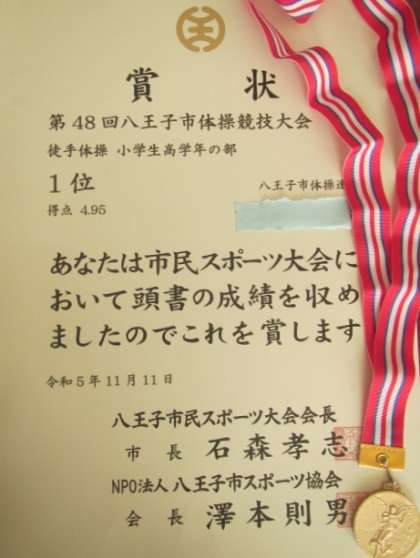 賞状
第48回八王子市体操競技大会
徒手体操 小学生高学年の部
1位
八王子市体操連
得点 4.95
あなたは市民スポーツ大会に
おいて頭書の成績を収め
ましたのでこれを賞します
令和5年11月11日
八王子市民スポーツ大会会長
市長 石森孝志
NPO法人 八王子市スポーツ協会
会長 澤本則男